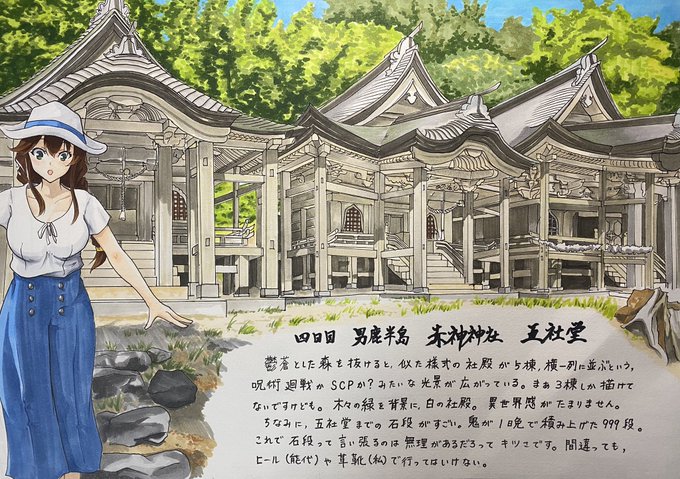 四日目 男鹿半島 赤神神社 五社堂
鬱蒼とした森を抜けると、似た様式の社殿が5棟、横一列に並ぶという、
呪術廻戦かSCPか?みたいな光景が広がっている。まぁ3棟しか描けて
ないですけども。木々の緑を背景に、白の社殿。異世界感がたまりません。
ちなみに、五社堂までの石段がすごい。鬼が1晩で積み上げた999段。
これで石段って言い張るのは無理があるだろってキツさです。間違っても、
ヒール(能代)や革靴(私)で行ってはいけない。